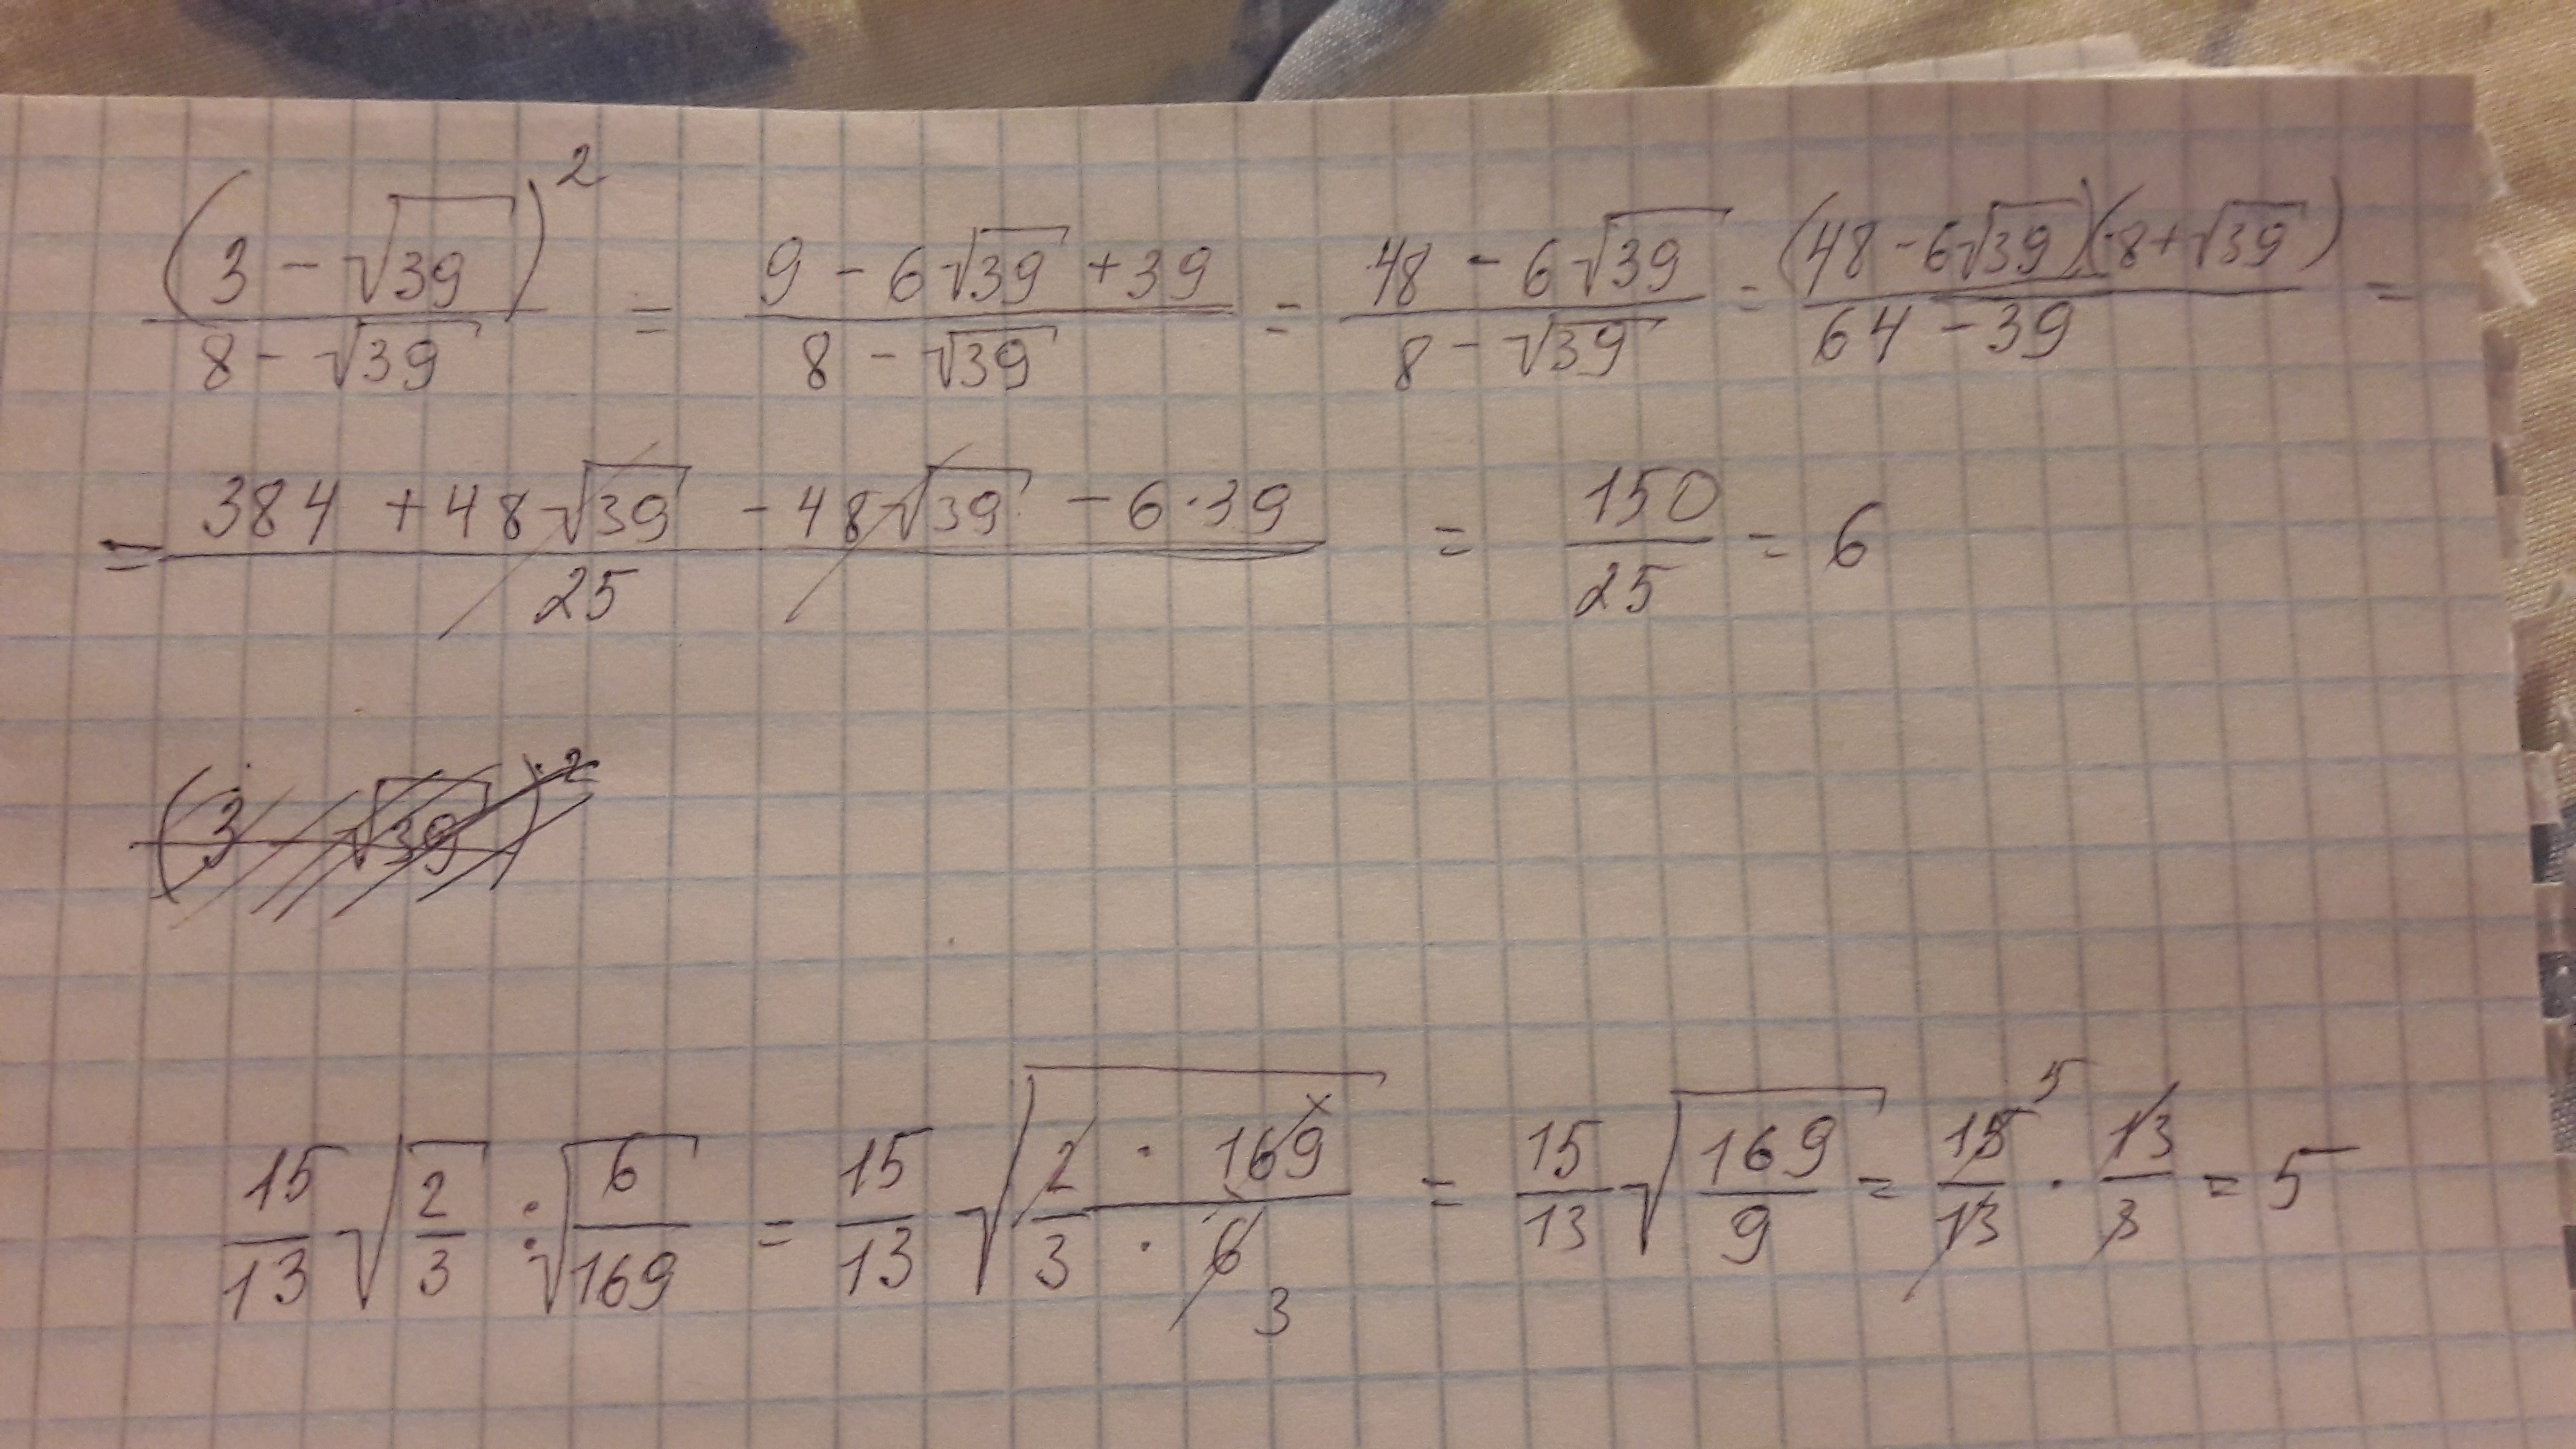 (3 - √39)² / (8 - √39) = (9 - 6√39 + 39) / (8 - √39) = (48 - 6√39) / (8 - √39) = (48 - 6√39)(8 + √39) / (64 - 39) =
= (384 + 48√39 - 48√39 - 6·39) / 25 = 150/25 = 6
(3 - √39)²
15/13 √(2/3) : √(6/169) = 15/13 √(2 · 169 / 3 · 6) 3 = 15/13 √(169/9) = 15/13 5 · 13/3 = 5